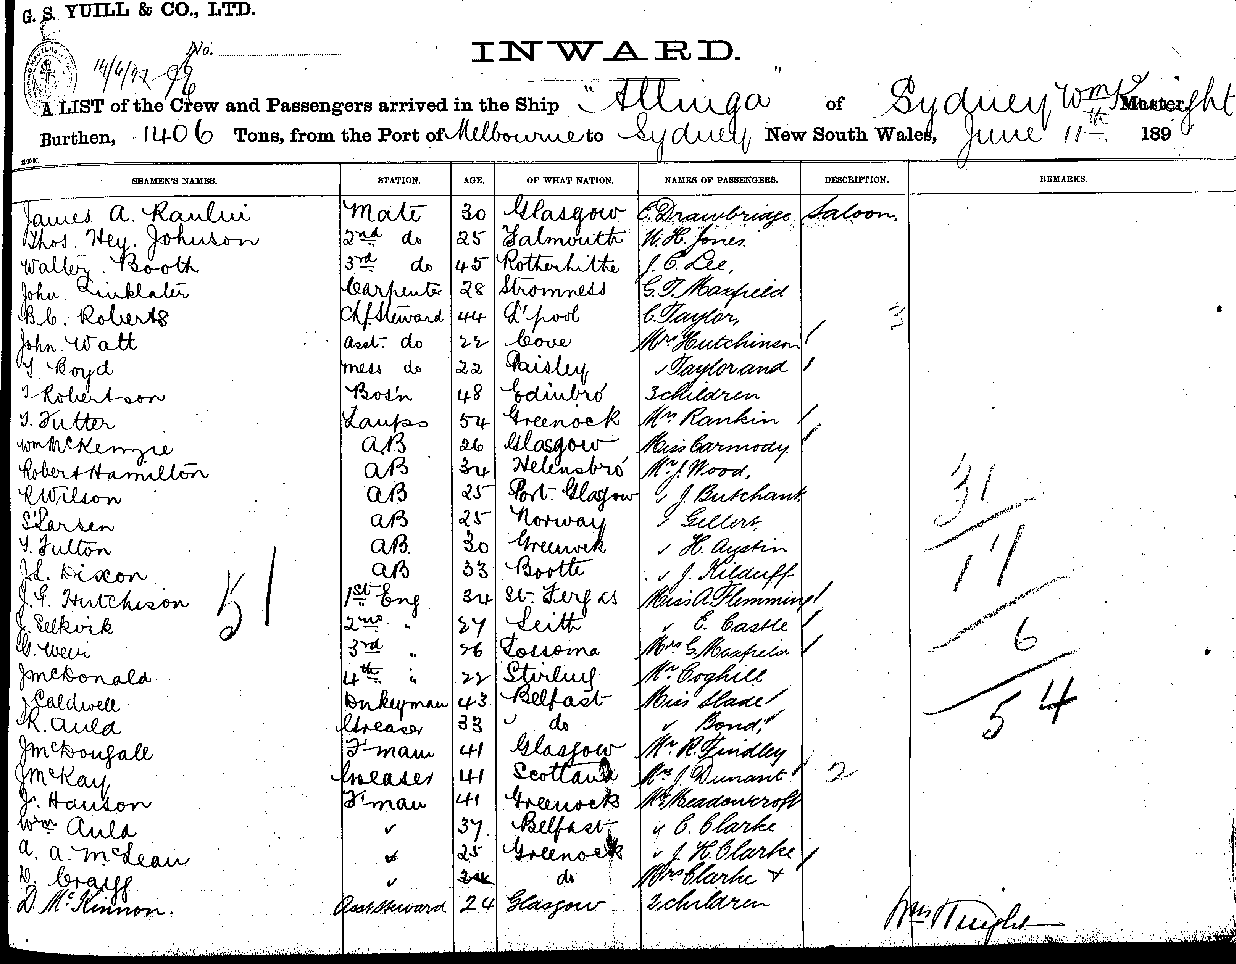 G. S. YUILL & CO., LTD.
No.
14/6/97 96
INWARD.
A LIST of the Crew and Passengers arrived in the Ship "Allinga" of Sydney Wm Knight Master,
Burthen, 1406 Tons, from the Port of Melbourne to Sydney New South Wales, June 11th 189
SEAMEN'S NAMES. STATION. AGE. OF WHAT NATION. NAMES OF PASSENGERS. DESCRIPTION. REMARKS.
James A. Mate 30 Glasgow C. Drawbridge Saloon.
Thos. Hey. Johnson 2nd do 25 Falmouth W. H. Jones
Walter Booth 3rd do 45 Rotherhithe J. C. Lee,
John Linklater Carpenter 28 Stromness G. T. Maxfield
B. C. Roberts Chf Steward 44 L'pool C. Taylor, 3
John Watt asst. do 22 Cove Mrs Hutchinson /
T Boyd mess do 22 Paisley " Taylor and /
T Robertson Bos'n 48 Edinbro' 3 children
T. Tutter Lamps 54 Greenock Mrs Rankin /
Wm McKenzie AB 26 Glasgow Miss Carmody /
Robert Hamilton AB 34 Helensbro' Mr J. Wood,
R Wilson AB 25 Port Glasgow " J Butchant 31
S Larsen AB 25 Norway " Gillers
T. Fulton AB. 30 Greenock " H. Austin 17
J. L. Dixon AB 33 Bootle " J. Kilduff
J. G. Hutchison 51 1st Eng 34 St. Fergus Miss A. Flemming /
J. Selkvik 2nd " 27 Leith " E. Castle / 6
Weir 3rd " 26 Mrs G. Maxfield /
J McDonald 4th " 22 Stirling Mr. Coghill
J Caldwell Donkeyman 43 Belfast Miss Slade / 54
R. Auld Greaser 33 " do " Bond, /
J McDougall F'man 41 Glasgow Mr. R. Findley
J McKay Greaser 41 Scotland Mrs J Durant / 2
J. Hanson F'man 41 Greenock Mr Meadowcroft
Wm Auld " 37. Belfast " C. Clarke
A. A. McLean " 25 Greenock " J. H. Clarke /
D. Cragg " 24 do Mrs Clarke +
D McKinnon. Asst Steward 24 Glasgow 2 children
Wm Knight